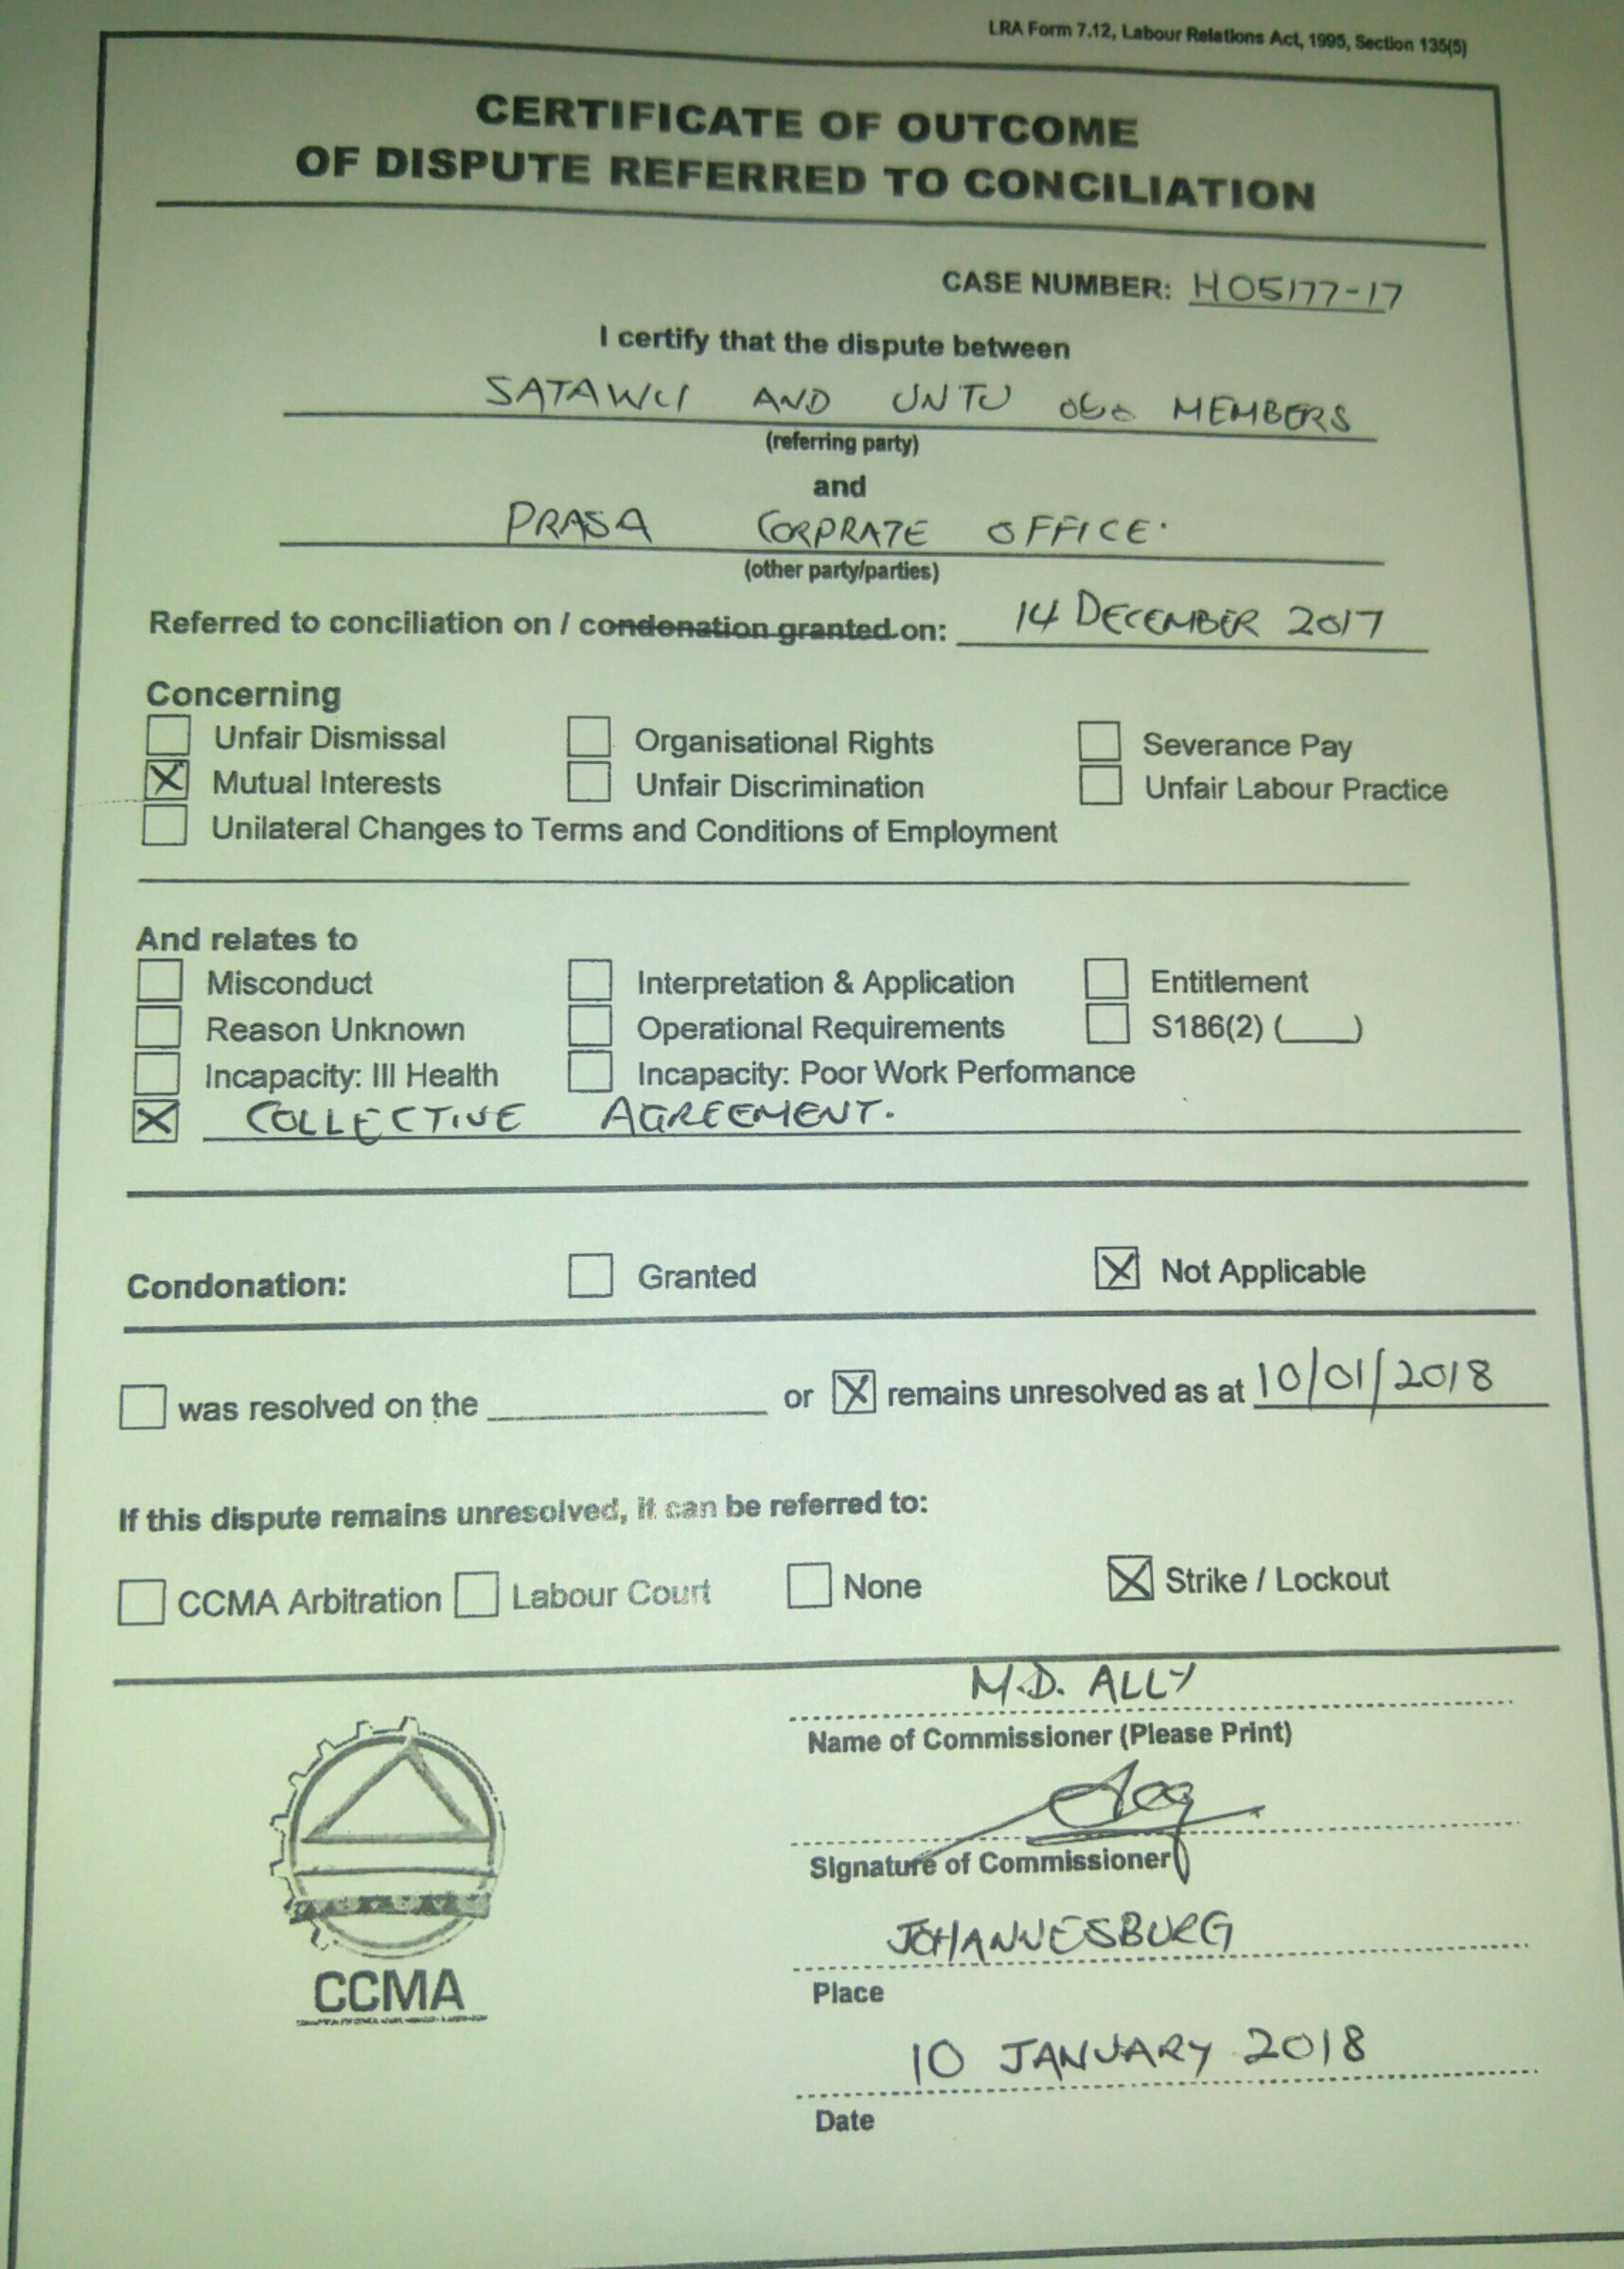 LRA Form 7.12, Labour Relations Act, 1995, Section 135(5)
CERTIFICATE OF OUTCOME
OF DISPUTE REFERRED TO CONCILIATION
CASE NUMBER: HO5177-17
I certify that the dispute between
SATAWU AND UNTU obo MEMBERS
(referring party)
and
PRASA CORPRATE OFFICE.
(other party/parties)
Referred to conciliation on / condonation granted on: 14 DECEMBER 2017
Concerning
Unfair Dismissal Organisational Rights Severance Pay
X Mutual Interests Unfair Discrimination Unfair Labour Practice
Unilateral Changes to Terms and Conditions of Employment
And relates to
Misconduct Interpretation & Application Entitlement
Reason Unknown Operational Requirements S186(2) (___)
Incapacity: Ill Health Incapacity: Poor Work Performance
X COLLECTIVE AGREEMENT.
Condonation: Granted X Not Applicable
was resolved on the ____________ or X remains unresolved as at 10/01/2018
If this dispute remains unresolved, it can be referred to:
CCMA Arbitration Labour Court None X Strike / Lockout
M.D. ALLY
Name of Commissioner (Please Print)
Signature of Commissioner
JOHANNESBURG
Place
CCMA
10 JANUARY 2018
Date